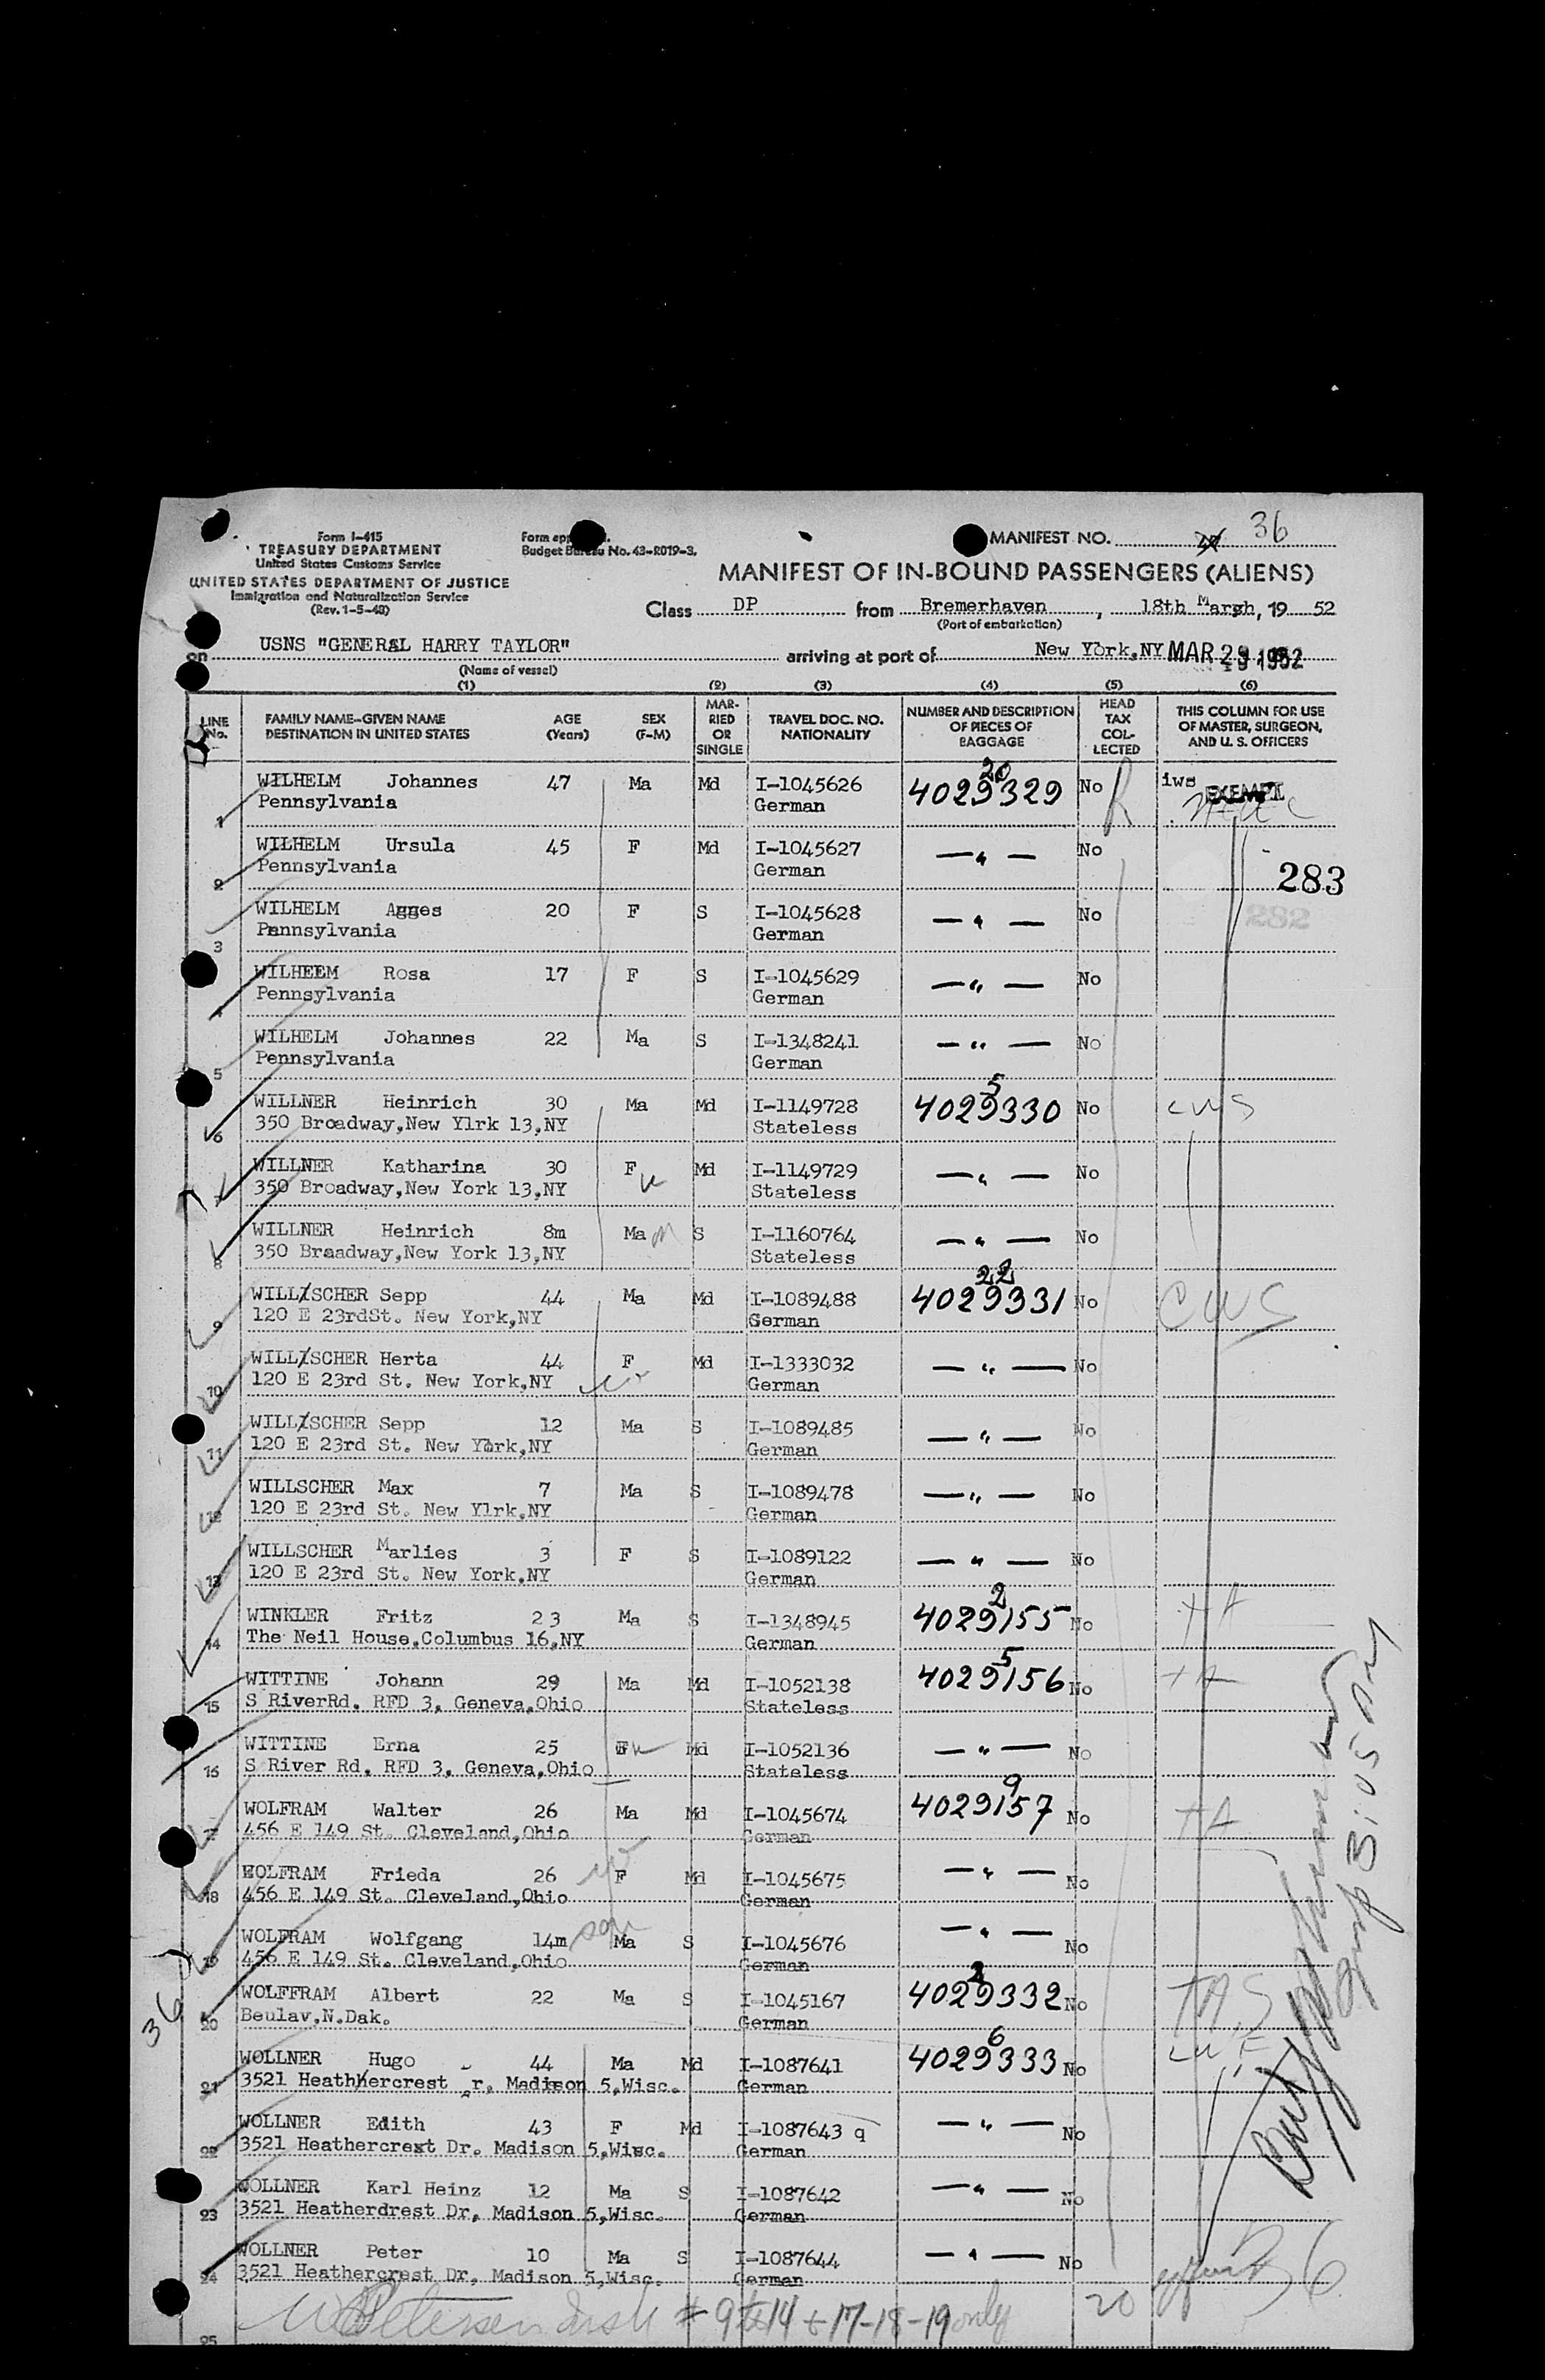 Form I-415
TREASURY DEPARTMENT
United States Customs Service
UNITED STATES DEPARTMENT OF JUSTICE
Immigration and Naturalization Service
(Rev. 1-5-48)
Budget Bureau No. 43-R019-3.
MANIFEST NO. 36
MANIFEST OF IN-BOUND PASSENGERS (ALIENS)
Class DP from Bremerhaven, 18th March, 19 52
(Port of embarkation)
on USNS "GENERAL HARRY TAYLOR" arriving at port of New York,NY MAR 29 1952
(Name of vessel)
(1) (2) (3) (4) (5) (6)
LINE No. FAMILY NAME-GIVEN NAME DESTINATION IN UNITED STATES AGE (Years) SEX (F-M) MARRIED OR SINGLE TRAVEL DOC. NO. NATIONALITY NUMBER AND DESCRIPTION OF PIECES OF BAGGAGE HEAD TAX COLLECTED THIS COLUMN FOR USE OF MASTER, SURGEON, AND U. S. OFFICERS
20
WILHELM Johannes 47 Ma Md I-1045626 4029329 No iws EXEMPT
1 Pennsylvania German
WILHELM Ursula 45 F Md I-1045627 — " — No
2 Pennsylvania German 283
WILHELM Agnes 20 F S I-1045628 — " — No 282
3 Pennsylvania German
WILHEEM Rosa 17 F S I-1045629 — " — No
4 Pennsylvania German
WILHELM Johannes 22 Ma S I-1348241 — " — No
5 Pennsylvania German
5
WILLNER Heinrich 30 Ma Md I-1149728 4029330 No CWS
6 350 Broadway,New Ylrk 13,NY Stateless
WILLNER Katharina 30 F Md I-1149729 — " — No
7 350 Broadway,New York 13,NY Stateless
WILLNER Heinrich 8m Ma S I-1160764 — " — No
8 350 Braadway,New York 13,NY Stateless
22
WILLSCHER Sepp 44 Ma Md I-1089488 4029331 No CWS
9 120 E 23rdSt. New York,NY German
WILLSCHER Herta 44 F Md I-1333032 — " — No
10 120 E 23rd St. New York,NY German
WILLSCHER Sepp 12 Ma S I-1089485 — " — No
11 120 E 23rd St. New York,NY German
WILLSCHER Max 7 Ma S I-1089478 — " — No
12 120 E 23rd St. New Ylrk,NY German
WILLSCHER Marlies 3 F S I-1089122 — " — No
13 120 E 23rd St. New York,NY German
2
WINKLER Fritz 23 Ma S I-1348945 4029155 No
14 The Neil House,Columbus 16,NY German
5
WITTINE Johann 29 Ma Md I-1052138 4029156 No
15 S RiverRd. RFD 3, Geneva,Ohio Stateless
WITTINE Erna 25 F Md I-1052136 — " — No
16 S River Rd. RFD 3, Geneva,Ohio Stateless
9
WOLFRAM Walter 26 Ma Md I-1045674 4029157 No
17 456 E 149 St. Cleveland,Ohio German
WOLFRAM Frieda 26 F Md I-1045675 — " — No
18 456 E 149 St. Cleveland,Ohio German
WOLFRAM Wolfgang 14m son Ma S I-1045676 — " — No
19 456 E 149 St. Cleveland,Ohio German
2
WOLFFRAM Albert 22 Ma S I-1045167 4029332 No
20 Beulav,N.Dak. German
6
WOLLNER Hugo 44 Ma Md I-1087641 4029333 No
21 3521 Heathhercrest r. Madison 5,Wisc. German
WOLLNER Edith 43 F Md I-1087643 q — " — No
22 3521 Heathercrest Dr. Madison 5,Wisc. German
WOLLNER Karl Heinz 12 Ma S I-1087642 — " — No
23 3521 Heatherdrest Dr, Madison 5,Wisc. German
WOLLNER Peter 10 Ma S I-1087644 — " — No
24 3521 Heathercrest Dr, Madison 5,Wisc. German
36
25 # 9 to 14 + 17-18-19 only 20